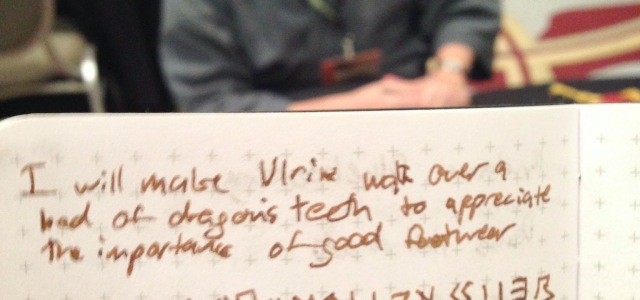 I will make Ulrike walk over a
bed of dragon's teeth to appreciate
the importance of good footwear